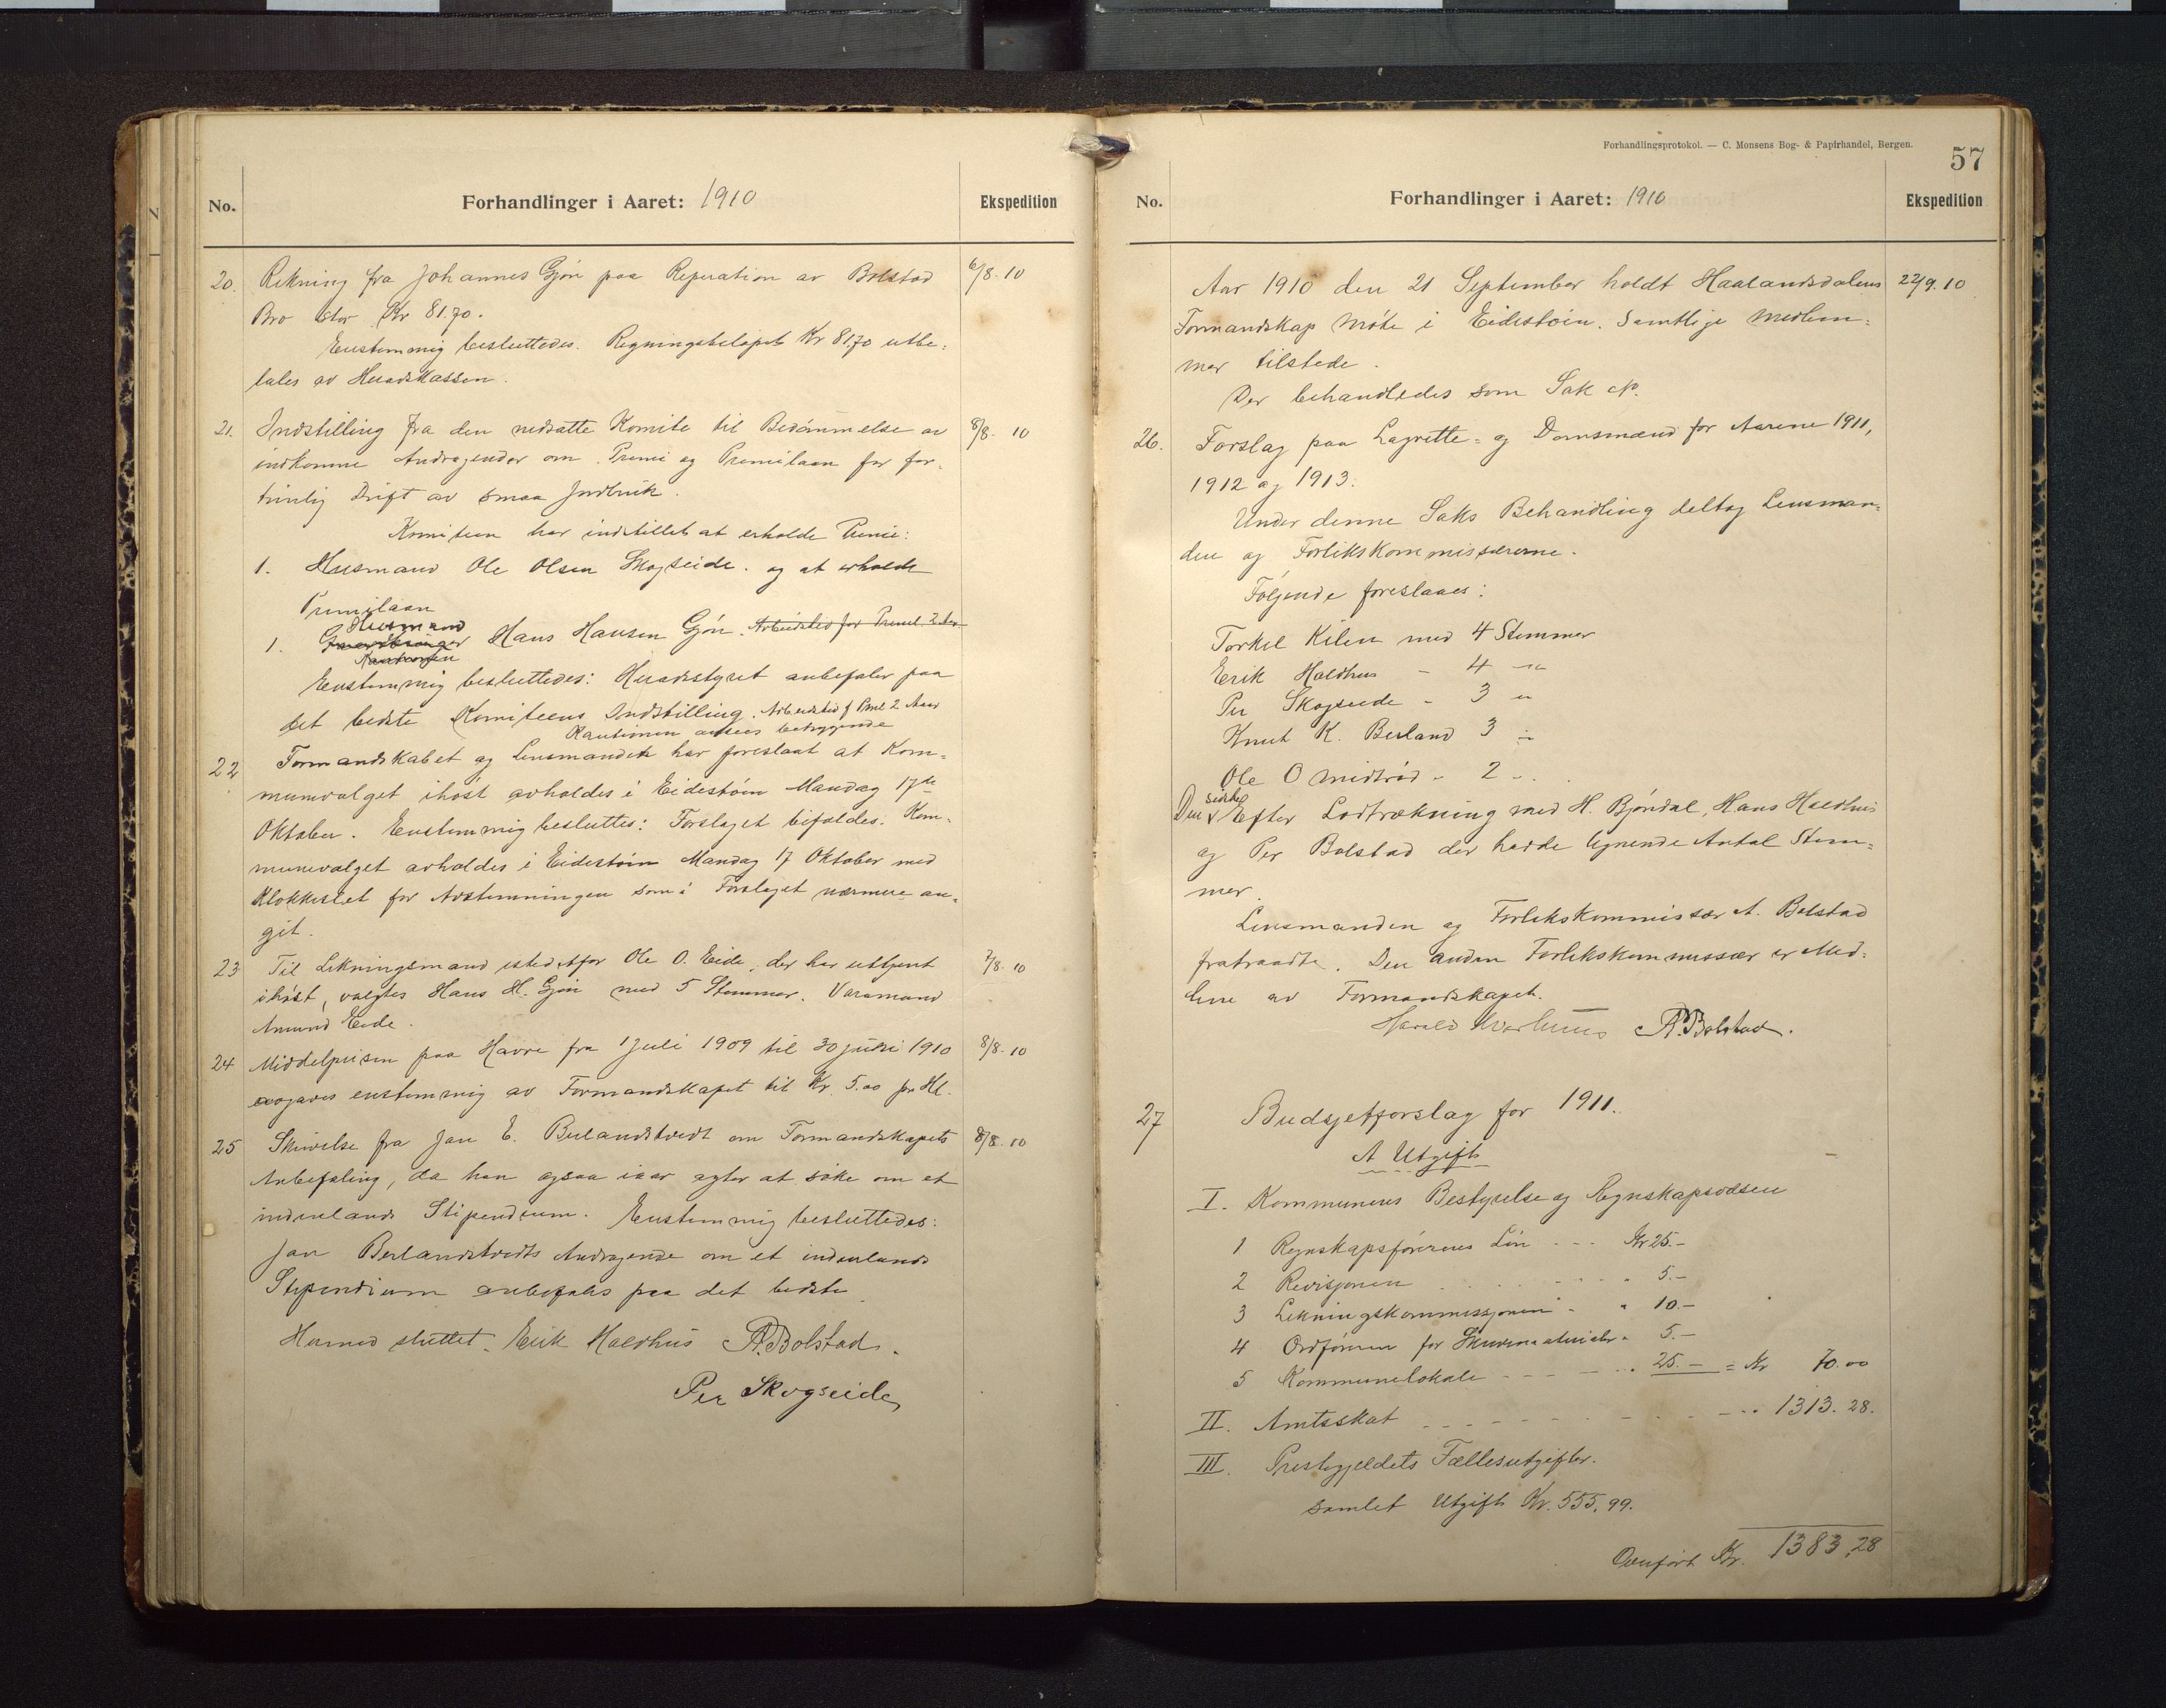 No. Forhandlinger i Aaret: 1910 Ekspedition
20. Rekning fra Johannes Gjøn paa Reperation av Bolstad 6/8. 10
Bro stor Kr 81.70.
Enstemmig besluttedes. Regningsbeløpet Kr 81.70 utbe=
tales av Heradskassen.
21. Indstilling fra den nedsatte Komite til Bedømmelse av 8/8. 10
indkomne Andragender om Premie og Premilaan for for=
trinlig Drift av smaa Jordbruk.
Komiteen har indstillet at erholde Premie:
1. Husmand Ole Olsen Skogseide. og at erholde
Premilaan
Husmand
1. Hans Hansen Gjøn. Arbeidsted for Premil 2 Aar
Enstemmig besluttedes: Heradsstyret anbefaler paa
det bedste Komiteens Indstilling. Arbeidstid f. Prml 2 Aar
Kautionen ansees betryggende
22 Formandskabet og Lensmanden har foreslaat at Kom=
munevalget ihøst avholdes i Eidestøin Mandag 17de
Oktober. Enstemmig besluttes: Forslaget bifaldes. Kom=
munevalget avholdes i Eidestøin Mandag 17 Oktober med
Klokkeslet for Avstemningen som i Forslaget nærmere an=
git.
23 Til Likningsmand istedetfor Ole O. Eide, der har uttjent 7/8. 10
ihøst, valgtes Hans H. Gjøn med 5 Stemmer. Varamand
Amund Eide.
24 Middelprisen paa Havre fra 1 Juli 1909 til 30 Juni 1910 8/8. 10
opgaves enstemmig av Formandskapet til Kr. 5.00 pr Hl.
25 Skrivelse fra Jan E. Berlandstvedt om Formandskapets 8/8. 10
Anbefaling, da han ogsaa iaar agter at søke om et
indenlands Stipendium. Enstemmig besluttedes:
Jan Berlandstvedts Andragende om et indenlands
Stipendium anbefales paa det bedste
Hermed sluttet. Erik Holdhus A. Bolstad.
Per Skogseide
Forhandlingsprotokol. — C. Monsens Bog- & Papirhandel, Bergen.
57
No. Forhandlinger i Aaret: 1910 Ekspedition
Aar 1910 den 21 September holdt Haalandsdalens 22/9. 10
Formandskap Møte i Eidestøin. Samtlige Medlem=
mer tilstede.
Der behandledes som Sak No.
26. Forslag paa Lagrette= og Domsmænd for Aarene 1911,
1912 og 1913.
Under denne Saks Behandling deltog Lensman=
den og Forlikskommissærerne.
Følgende foreslaaes:
Torkel Kilen med 4 Stemmer
Erik Holdhus - 4 -"-
Per Skogseide - 3 "
Knut K. Berland 3 "
Ole O Midtrød - 2 - .
Den sidste Efter Lodtrækning med H. Bjøndal, Hans Holdhus
og Per Bolstad der havde lignende Antal Stem=
mer.
Lensmanden og Forlikskommissær A. Bolstad
fratraadte. Den anden Forlikskommissær er Med=
lem av Formandskapet.
Harald A. Bolstad.
27 Budsjetforslag for 1911.
A Utgift
I. Kommunens Bestyrelse og Regnskapsvæsen
1 Regnskapsførerens Løn - - - Kr 25.-
2 Revisjonen . . . - - - " 5.-
3 Likningskommissjonen - " 10.-
4 Ordføreren for Skrivmaterialer " 5.-
5 Kommunelokale - - - - .. 25.- = Kr 70.00
II. Amtsskat - - - - - - - - - - .. 1313.28.
III. Prestegjeldets Fællesutgifter.
samlet Utgift Kr. 555,99.
Overført Kr. 1383,28